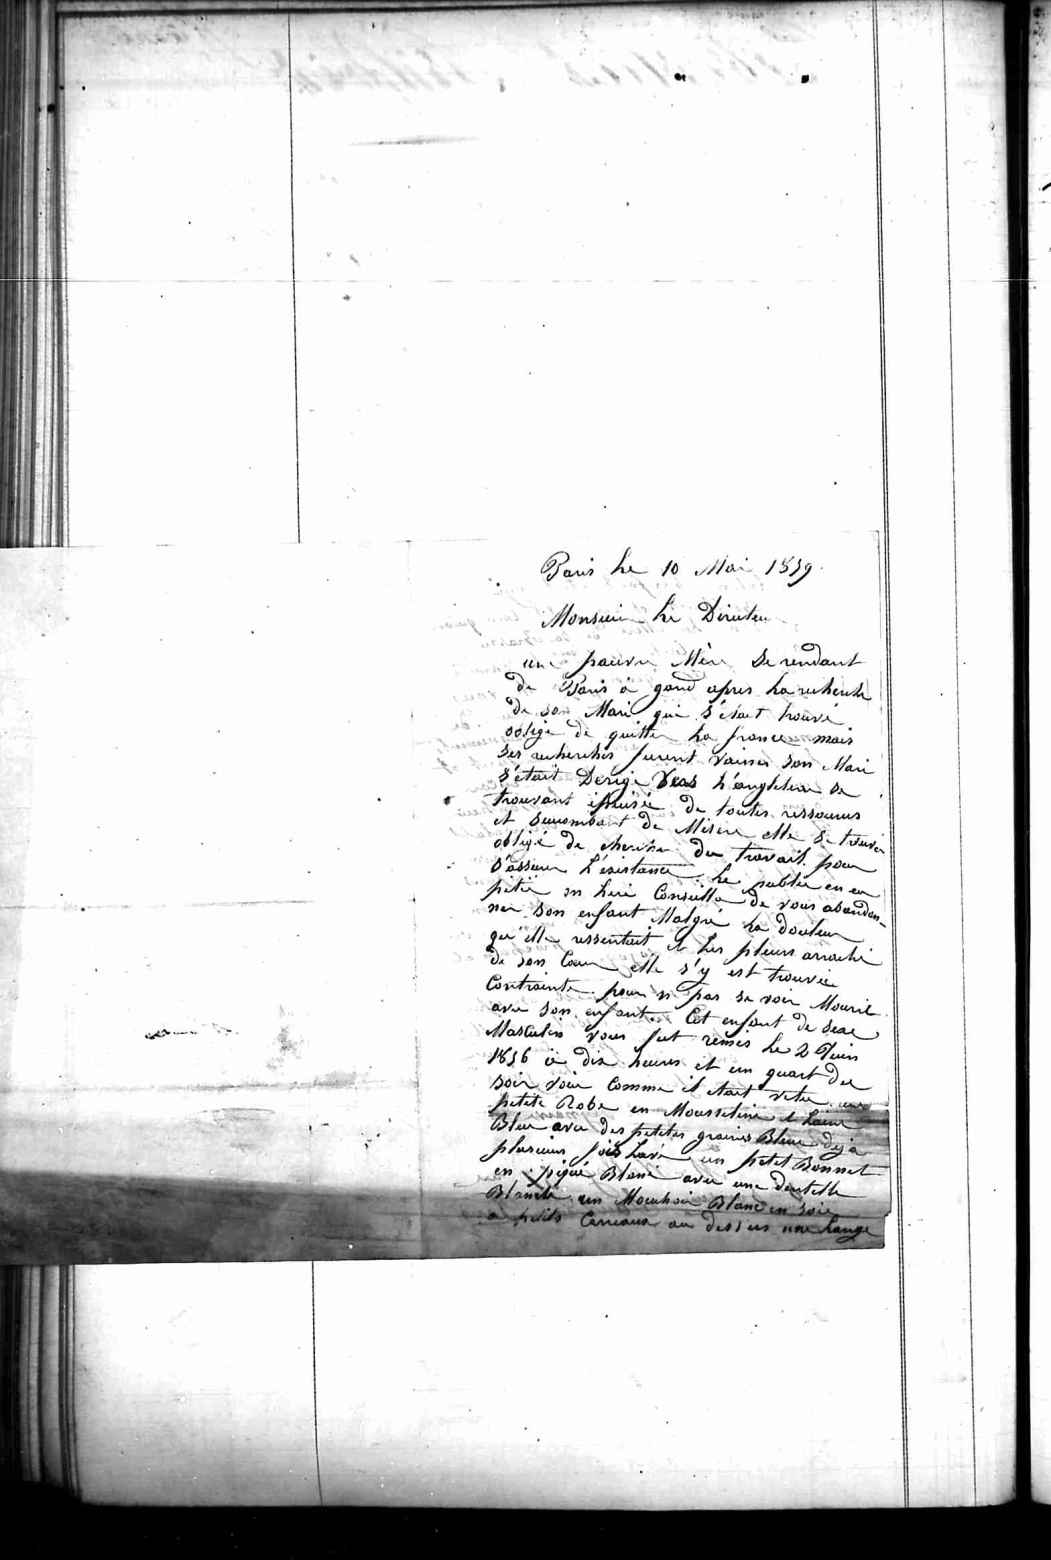 Paris Le 10 Mai 1859
Monsieur Le Directeur
une pauvre Mère se rendant
de Paris à gand apres La recherche
de son Mari qui s'était trouvé
obligé de quitter La france mais
ses recherches furent vaines son Mari
s'était Dérigé Vers L'angleterre se
trouvant épuisée de toutes ressources
et succombant de Misère elle se trouva
obligé de cherche du travail pour
s'assurer L'éxistance Le public en eu
pitié on Lui Conseilla De vous abandon-
ner son enfant Malgré La douleur
qu'elle ressentait et Les pleurs arraché
de son Coeur elle s'y est trouvée
Contrainte pour n pas se voir Mourir
avec son enfant. Cet enfant de sexe
Masculin vous fut remis Le 2 Juin
1856 à dix heures et un quart du
soir voici Comme il était vetu une
petite Robe en Mousseline d Laine
Bleu avec des petites graines Bleue déjà
plusieurs fois Lavé un petit Bonnet
en piqué Blanc avec une dentelle
Blanche un Mouchoir Blanc en soie
a petits Carreaux au dessus une Lange